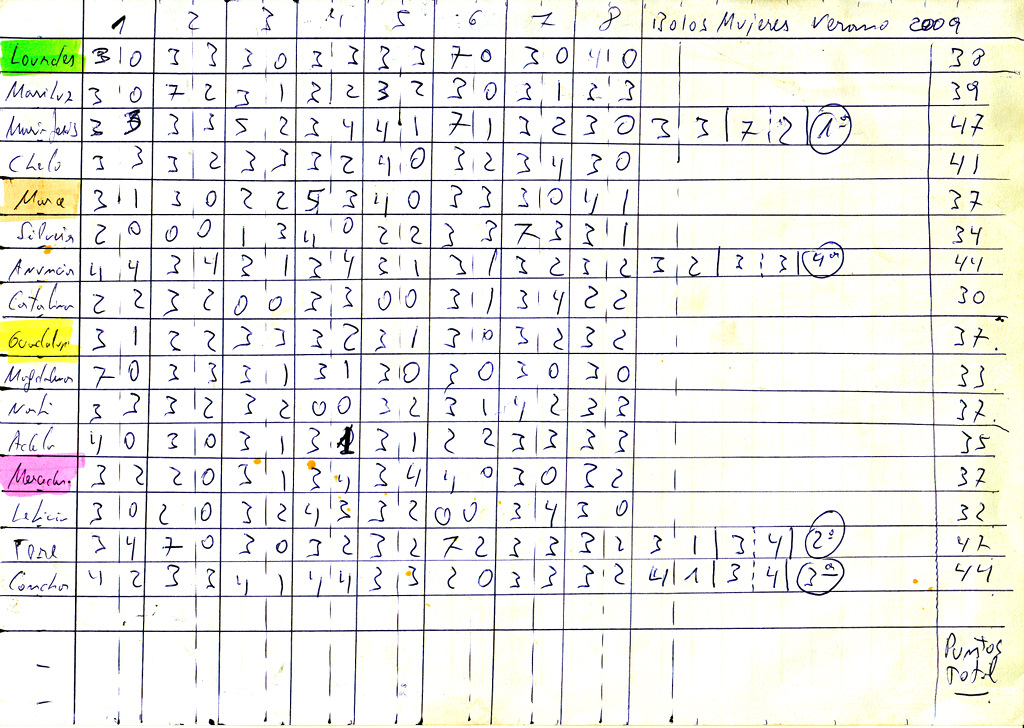 1 2 3 4 5 6 7 8 Bolos Mujeres Verano 2009
Lourdes 3 0 3 3 3 0 3 3 3 3 7 0 3 0 4 0 38
Mariluz 3 0 7 2 3 1 3 2 3 2 3 0 3 1 3 3 39
3 3 3 3 5 2 3 4 4 1 7 1 3 2 3 0 3 3 7 2 1ª 47
Chelo 3 3 3 2 3 3 3 2 4 0 3 2 3 4 3 0 41
3 1 3 0 2 2 5 3 4 0 3 3 3 0 4 1 37
Silvia 2 0 0 0 1 3 4 0 2 2 3 3 7 3 3 1 34
4 4 3 4 3 1 3 4 3 1 3 1 3 2 3 2 3 2 3 3 4ª 44
Catalina 2 2 3 2 0 0 3 3 0 0 3 1 3 4 2 2 30
3 1 2 2 3 3 3 2 3 1 3 0 3 2 3 2 37.
Magdalena 7 0 3 3 3 1 3 1 3 0 3 0 3 0 3 0 33
3 3 3 2 3 2 0 0 3 2 3 1 4 2 3 3 37.
Adela 4 0 3 0 3 1 3 1 3 1 2 2 3 3 3 3 35
3 2 2 0 3 1 3 4 3 4 4 0 3 0 3 2 37
Leticia 3 0 2 0 3 2 4 3 3 2 0 0 3 4 3 0 32
3 4 7 0 3 0 3 2 3 2 7 2 3 3 3 2 3 1 3 4 2ª
Concha 4 2 3 3 4 1 4 4 3 3 2 0 3 3 3 2 4 1 3 4 3ª 44
Puntos
Total